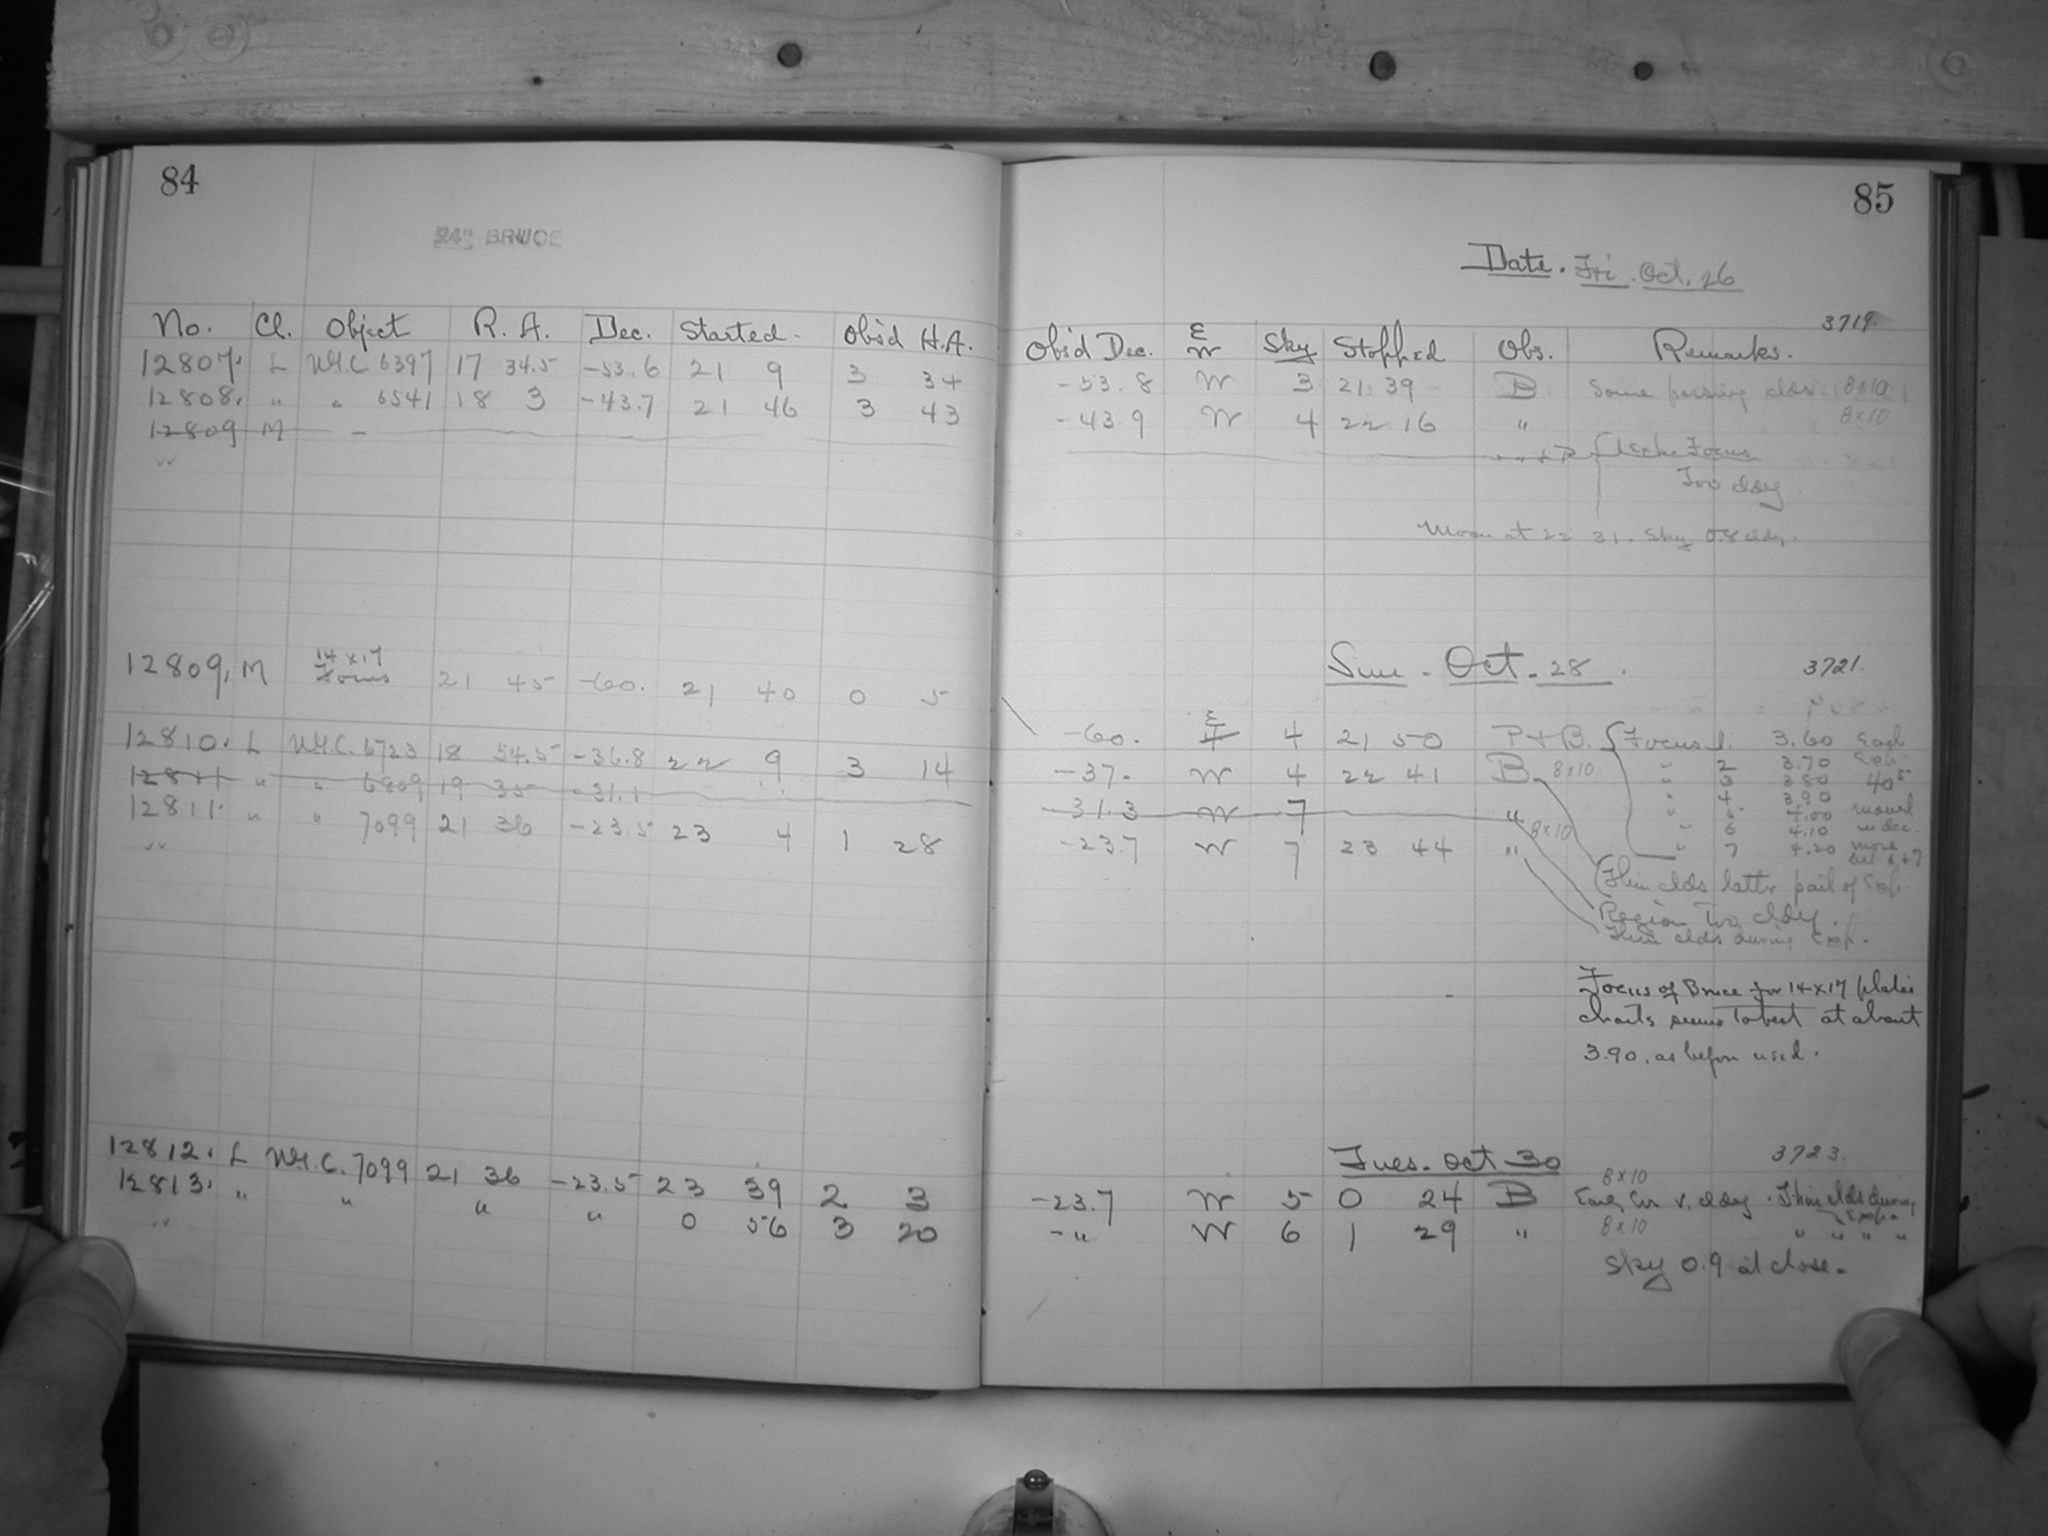 84
24" BRUCE
No. Cl. Object R. A. Dec. Started Obs'd H.A.
12807. L N.G.C 6397 17 34.5 -53.6 21 9 3 34
12808. " " 6541 18 3 -43.7 21 46 3 43
12809 M -
12809, M 14 x 17 Focus 21 45 -60. 21 40 0 5
12810. L N.G.C. 6723 18 54.5 -36.8 22 9 3 14
12811 " " 6809 19 35 -31.1
12811. " " 7099 21 36 -23.5 23 4 1 28
12812. L N.G.C. 7099 21 36 -23.5 23 39 2 3
12813. " " " " 0 56 3 20
85
Date. Fri. Oct. 26
3719.
Obs'd Dec. E W Sky Stopped Obs. Remarks.
-53.8 W 3 21 39 B Some passing clds. 8x10
-43.9 W 4 22 16 " 8x10
Focus
Too cldy.
Moon at 22 31. Sky 0.8 cldy.
Sun. Oct. 28. 3721.
-60. E 4 21 50 P + B. Focus 1. 3.60 Each
" 2 3.70 Exp.
-37. W 4 22 41 B 8x10 " 3 3.80 40s
" 4 3.90
-31.3 W 7 " " 5 4.00 moved
" 6 4.10 in dec.
-23.7 W 7 23 44 " 8x10 " 7 4.20 more bet 6+7
Thin clds latter part of Exp.
Region too cldy.
Thin clds during Exp.
Focus of Bruce for 14x17 plates
charts seems to best at about
3.90, as before used.
Tues. Oct 30 3723.
-23.7 W 5 0 24 B 8x10 v. cldy. Thin clds during Exp.
-" W 6 1 29 " 8x10 " " " "
Sky 0.9 at close.